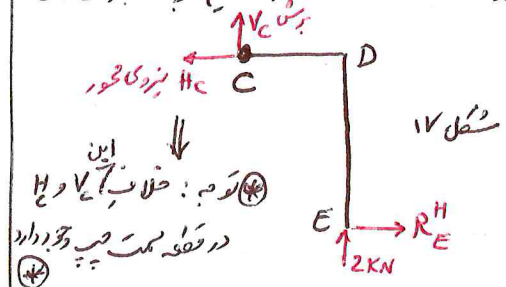 برش V_C
نیروی محور H_C
C
D
شکل ۱۷
⇓
این
⊛ توجه : خلاف V_C و H_C
در قطعه سمت چپ وجود دارد
⊛
E
R_E^H
2KN